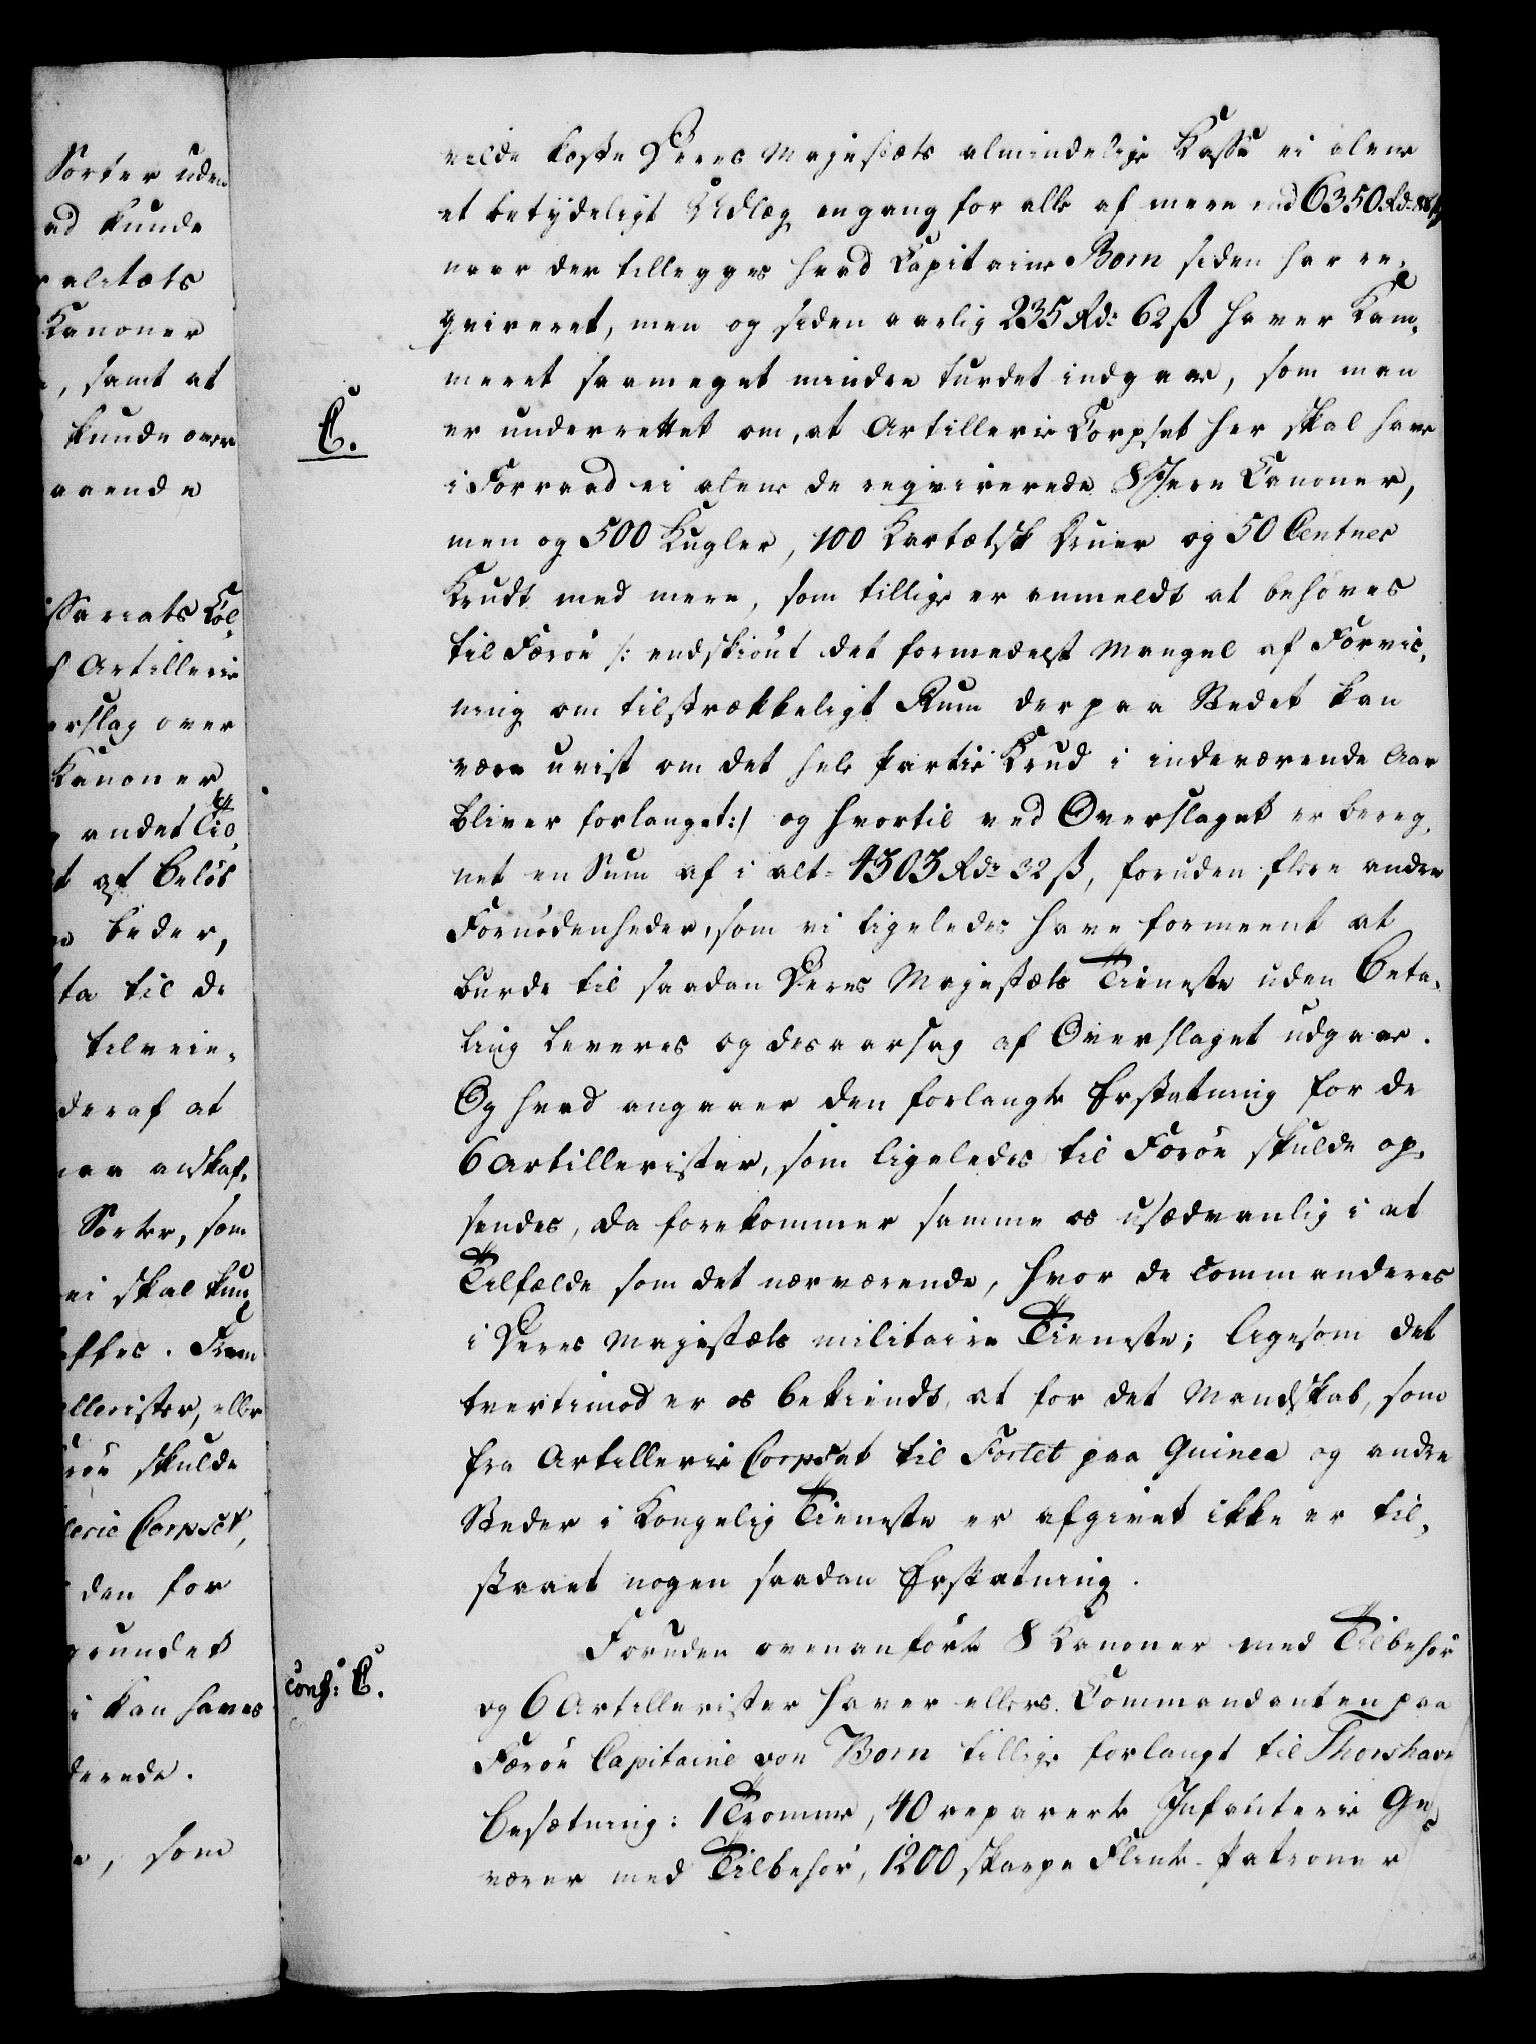 Sorter uden
ad kunde
ralitets
Kanoner
, samt at
kunde over
aaende
ssariats Col¬
Artillerie
erslag over
Kanoner
andet Tio¬
t af Beløb
beder,
ta til de
tilveie¬
deraf at
anskaf¬
Sorter, som
ei skal kun¬
affes. Frem
ellerister, eller
røe skulde
lerie Corpset,
den for
grundet
i kan haves
derede.
, som
vilde koste Deres Majestæts almindelige Casse ei alene
et betydeligt Udlæg engang for alle af meere end 6350 Rd:
naar der tillegges hvad Capitaine Born siden har re¬
qvireret, men og siden aarlig 235 Rd: 62 ß haver Kam¬
meret saameget mindre turdet indgaae, som man
C.
er underrettet om, at Artillerie Corpset her skal have
i Forraad ei alene de reqvirerede 8 Jern Canoner,
men og 500 Kugler, 100 Kartætsk Druer og 50 Centner
Krudt med mere, som tillige er anmeldt at behøves
til Færøe /: endskiøndt det formedelst Mangel af Forvis¬
ning om tilstrækkeligt Rum der paa Stedet kan
være uvist om det hele Partie Krud i indeværende Aar
bliver forlanget :/ og hvortil ved Overslaget er bereg¬
net en Sum af i alt = 4303 Rd: 32 ß, foruden flere andre
Fornødenheder, som vi ligeledes have formeent at
burde til saadan Deres Majestæts Tieneste uden Beta¬
ling leveres og desaarsag af Overslaget udgaae.
Og hvad angaaer den forlangte Erstatning for de
6 Artillerister, som ligeledes til Færøe skulde op¬
sendes, da forekommer samme os usædvanlig i et
Tilfælde som det nærværende, hvor de commanderes
i Deres Majestæts militaire Tieneste; ligesom det
tvertimod er os bekiendt, at for det Mandskab, som
fra Artillerie Corpset til Fortet paa Guinea og andre
Steder i Kongelig Tieneste er afgivet ikke er til¬
staaet nogen saadan Erstatning.
Foruden ovenanførte 8 Kanoner med Tilbehør
conf: C.
og 6 Artillerister haver ellers Commandanten paa
Færøe Capitaine von Born tillige forlangt til Thorshavn
Besætning: 1 Tromme, 40 reparerte Infanterie Ge¬
værer med Tilbehør, 1200 skarpe Flinte-Patroner